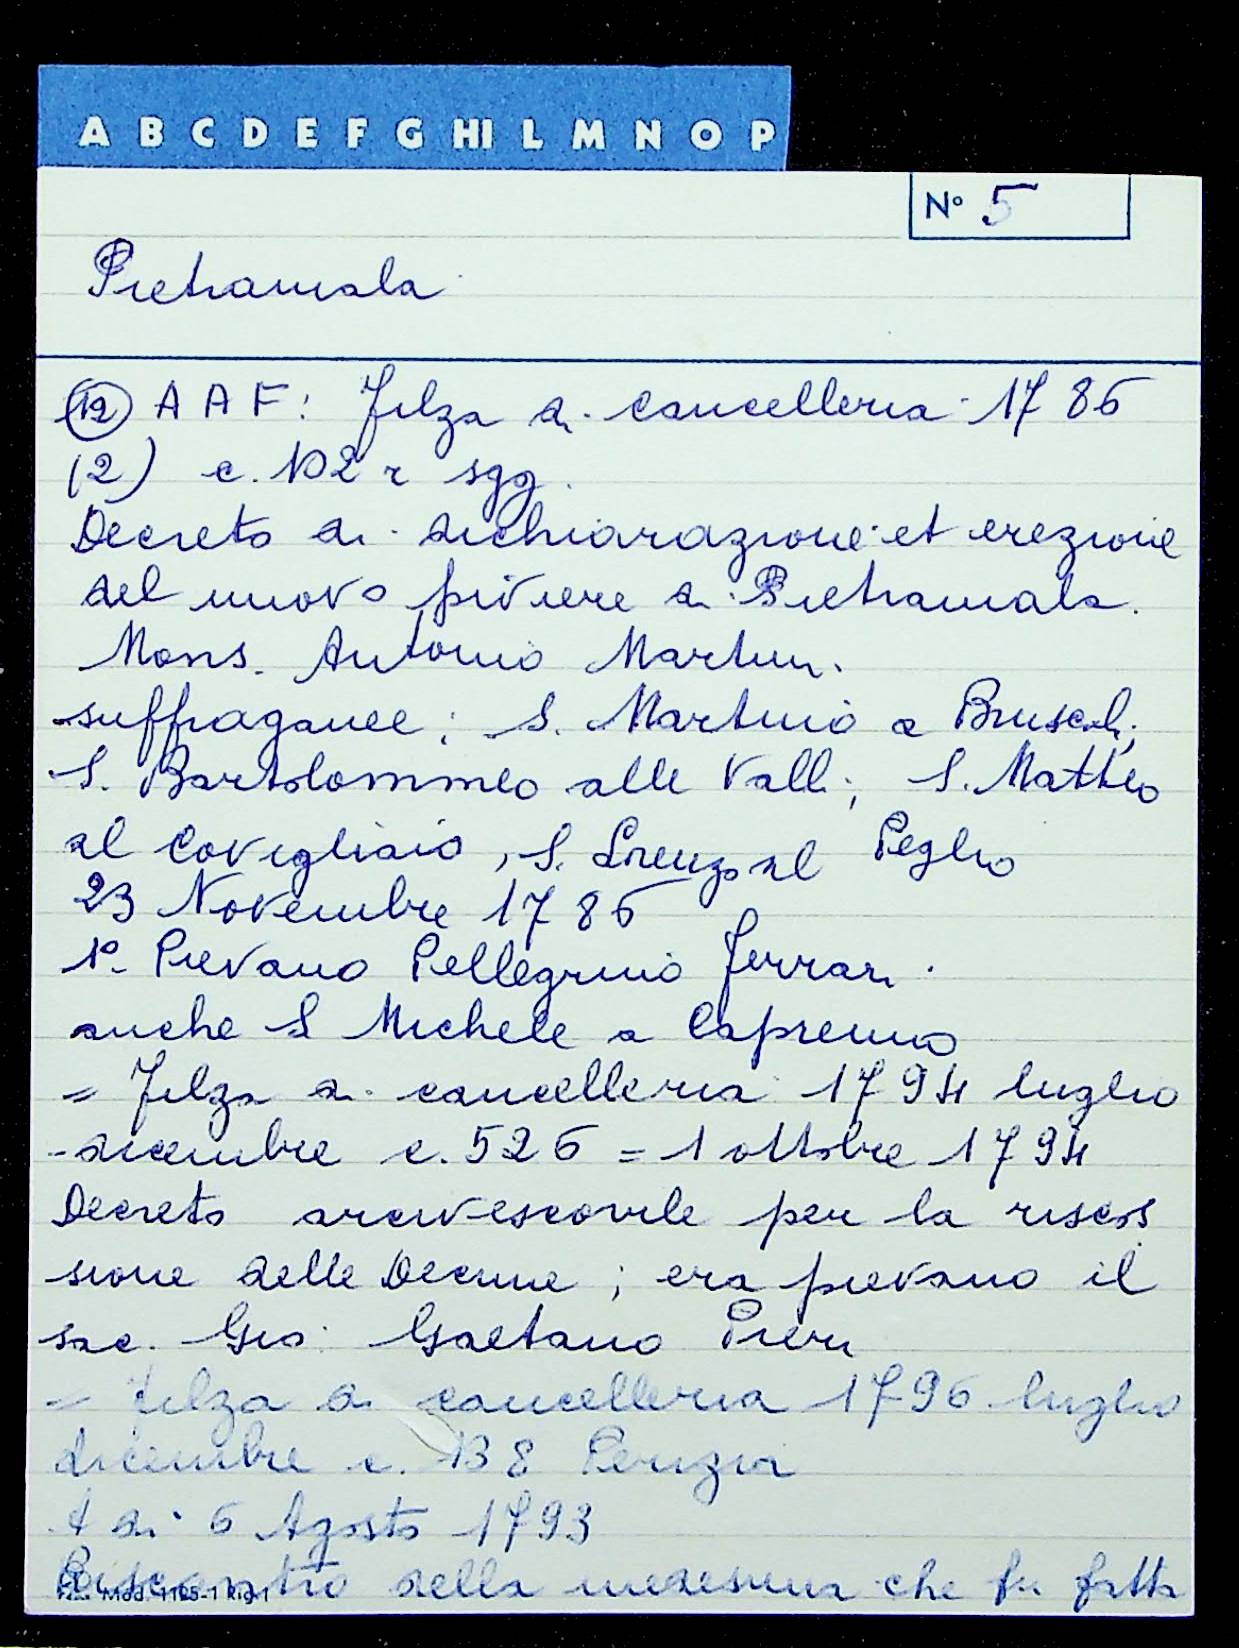 A B C D E F G HI L M N O P
N° 5
Pietramala
(12) A A F: Filza di cancelleria 1786
(2) c. 102 r sgg.
Decreto di dichiarazione et erezione
del nuovo piviere di Pietramala.
Mons. Antonio Martini.
suffraganee: S. Martino a Bruscoli;
S. Bartolommeo alle Valli; S. Matteo
al Covigliaio, S. Lorenzo al Peglio
23 Novembre 1786
1° Pievano Pellegrino Ferrari.
anche S Michele a Caprenno
= Filza di cancelleria 1794 luglio
-dicembre c. 526 = 1 ottobre 1794
Decreto arcivescovile per la riscos
sione delle Decime; era pievano il
sac. Gio: Gaetano Pieri
= Filza di cancelleria 1796 luglio
dicembre c. 138 Perizia
A di 6 Agosto 1793
Riscontro della medesima che fu fatta
Mod. 1165-1 Rig.1